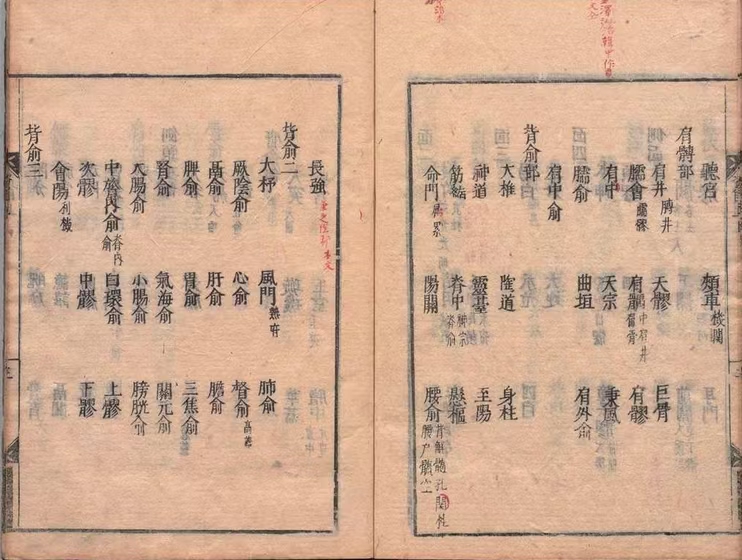 聽宮 頰車 機關
肩髆部
肩井 膊井 天髎 巨骨
臑會 臑髎 肩髃 中肩井 扁骨 肩髎
肩中 天宗 秉風
臑俞 曲垣 肩外俞
肩中俞
背俞部
大椎 陶道 身柱
神道 靈臺 至陽
筋縮 脊中 神宗 脊俞 懸樞
命門 屬累 陽關 腰俞 背解 髓孔 腰戶 髓空
長強
背俞二
大杼 風門 熱府 肺俞
厥陰俞 心俞 督俞 高蓋
膈俞 肝俞 膽俞
脾俞 胃俞 三焦俞
腎俞 氣海俞 關元俞
大腸俞 小腸俞 膀胱俞
中膂內俞 脊內俞 白環俞 上髎
次髎 中髎 下髎
會陽 利機
背俞三